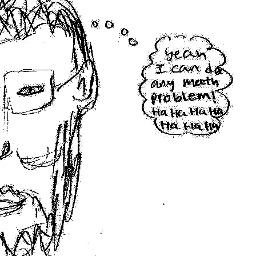 yeah
I can do
any meath
problem!
Ha Ha Ha Ha
Ha Ha Ha